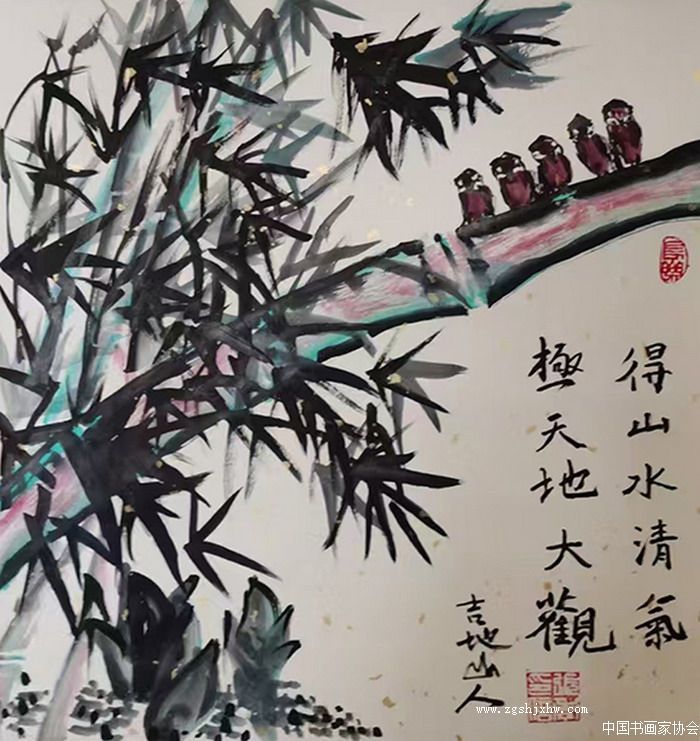 得山水清氣
極天地大觀
吉地山人
www.zgshjxhw.com
中国书画家协会